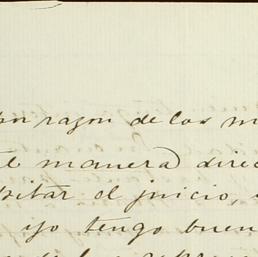 por razon de los m
te manera direc
bitar el juicio,
yo tengo buen